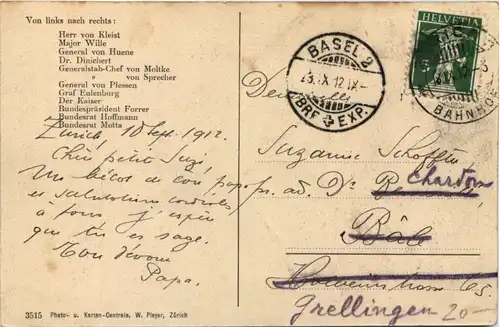 Von links nach rechts:
Herr von Kleist
Major Wille
General von Huene
Dr. Dinichert
Generalstab-Chef von Moltke
" von Sprecher
General von Plessen
Graf Eulenburg
Der Kaiser
Bundespräsident Forrer
Bundesrat Hoffmann
Bundesrat Motta
Zurich, 10 Sept. 1912.
petit Suzi,
Un de ton papa
et salutations cordiales
à tous j'espère
que tu es sage.
Ton dévoué
Papa.
3515 Photo- u. Karten-Centrale, W. Pleyer, Zürich
HELVETIA
5
BAHNHOF
BASEL 2
BRF EXP.
Suzanne
ad. Dr
Chardon
Bâle
65
Grellingen
20-